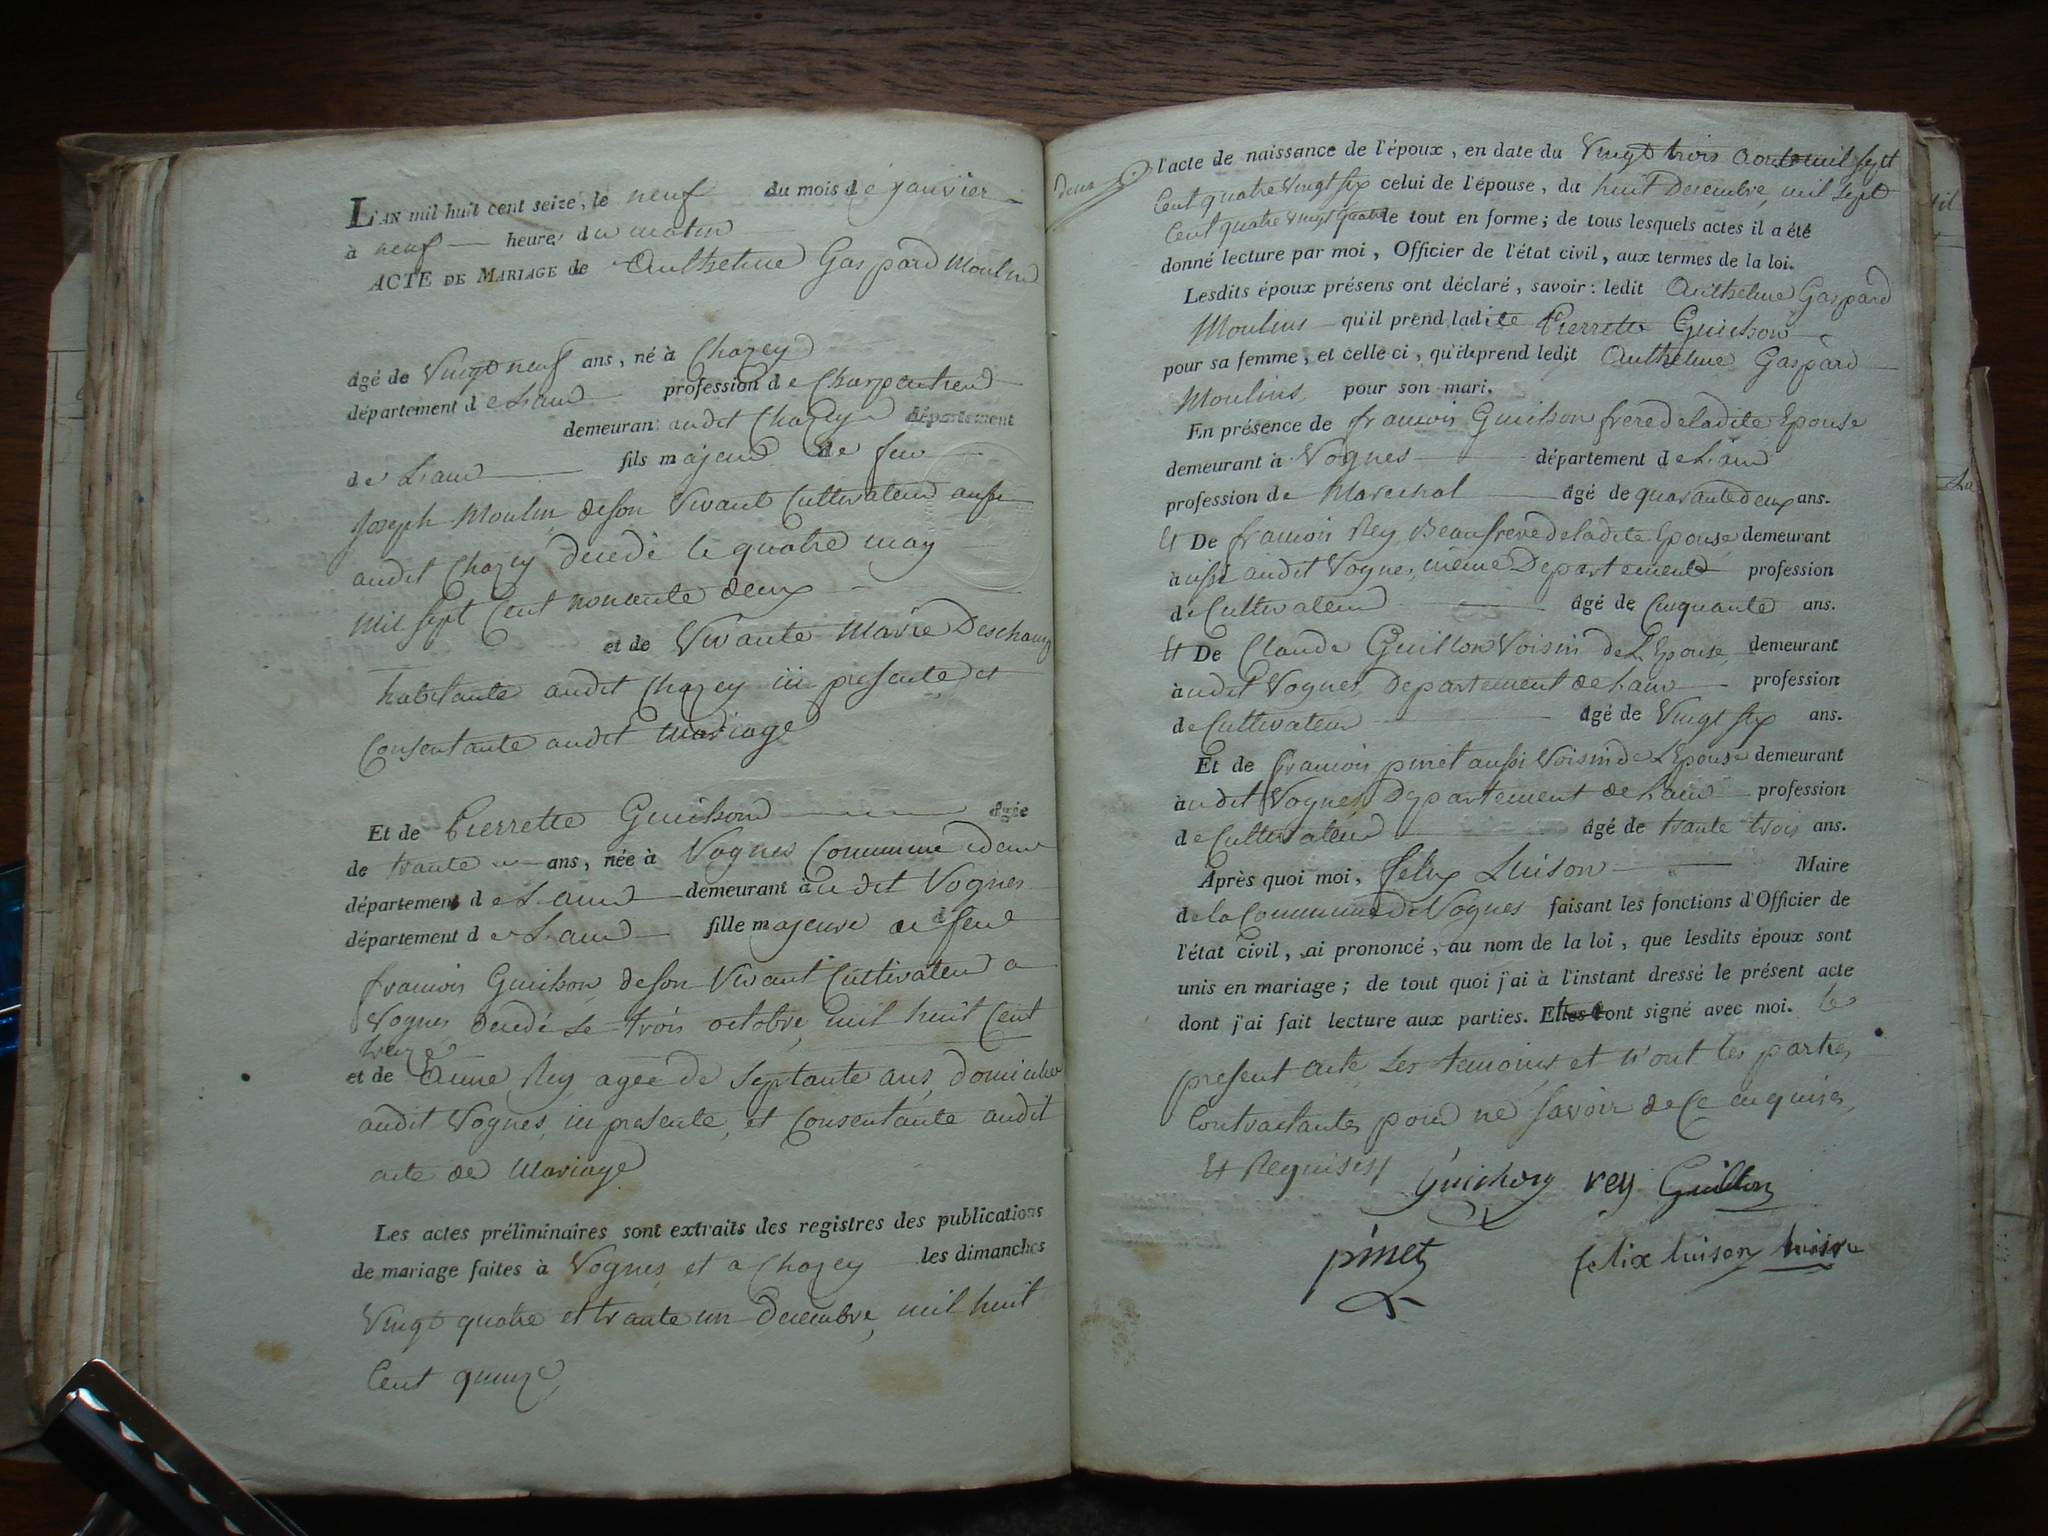 L'AN mil huit cent seize, le neuf du mois de janvier
à neuf heures du matin
ACTE DE MARIAGE de Anthelme Gaspard Moulin
âgé de Vingt neuf ans, né à Chazey
département de L'ain profession de Charpentier
demeurant audit Chazey département
de L'ain fils majeur de feu
Joseph Moulin, de son Vivant Cultivateur aussi
audit Chazey decedé le quatre may
mil sept Cent nonante deux
et de Vivante Marie Deschamp
habitante audit Chazey ici presente et
Consentante audit mariage
Et de Pierrette Guichon âgée
de trante ans, née à Vognes Commune
département de L'ain demeurant audit Vognes
département de L'ain fille majeure de feu
francois Guichon, de son Vivant Cultivateur a
Vognes, decedé Le trois octobre, mil huit Cent
treize
et de Anne Rey agée de Septante ans, domiciliée
audit Vognes, ici presente, et Consentante audit
acte de Mariage
Les actes préliminaires sont extraits des registres des publications
de mariage faites à Vognes et a Chazey les dimanches
Vingt quatre et trante un Decembre, mil huit
Cent quinze
deux
l'acte de naissance de l'époux, en date du Vingt trois Aout mil sept
Cent quatre Vingt six celui de l'épouse, du huit Decembre, mil Sept
Cent quatre Vingt quatre le tout en forme; de tous lesquels actes il a été
donné lecture par moi, Officier de l'état civil, aux termes de la loi.
Lesdits époux présens ont déclaré, savoir: ledit Anthelme Gaspard
Moulins qu'il prend ladite Pierrette Guichon
pour sa femme, et celle ci, qu'ile prend ledit Anthelme Gaspard
Moulins pour son mari.
En présence de francois Guichon frere de ladite Epouse
demeurant à Vognes département de L'ain
profession de Marechal âgé de quarante deux ans.
Et De francois Rey Beaufrere de ladite Epouse demeurant
aussi audit Vognes, même Departement profession
de Cultivateur âgé de Cinquante ans.
Et De Claude Guillon Voisin de L'Epouse demeurant
audit Vognes Departement de L'ain profession
de Cultivateur âgé de Vingt six ans.
Et de francois pinet aussi Voisin de L'Epouse demeurant
audit Vognes Departement de L'ain profession
de Cultivateur âgé de trante trois ans.
Après quoi moi, felix Luison Maire
de la Commune de Vognes faisant les fonctions d'Officier de
l'état civil, ai prononcé, au nom de la loi, que lesdits époux sont
unis en mariage; de tout quoi j'ai à l'instant dressé le présent acte
dont j'ai fait lecture aux parties. Elles ont signé avec moi. le
present acte, Les temoins et n'ont les parties
Contractantes pour ne savoir de Ce enquises
Et Requises
Guichon rey Guillon
pinet felix luison maire